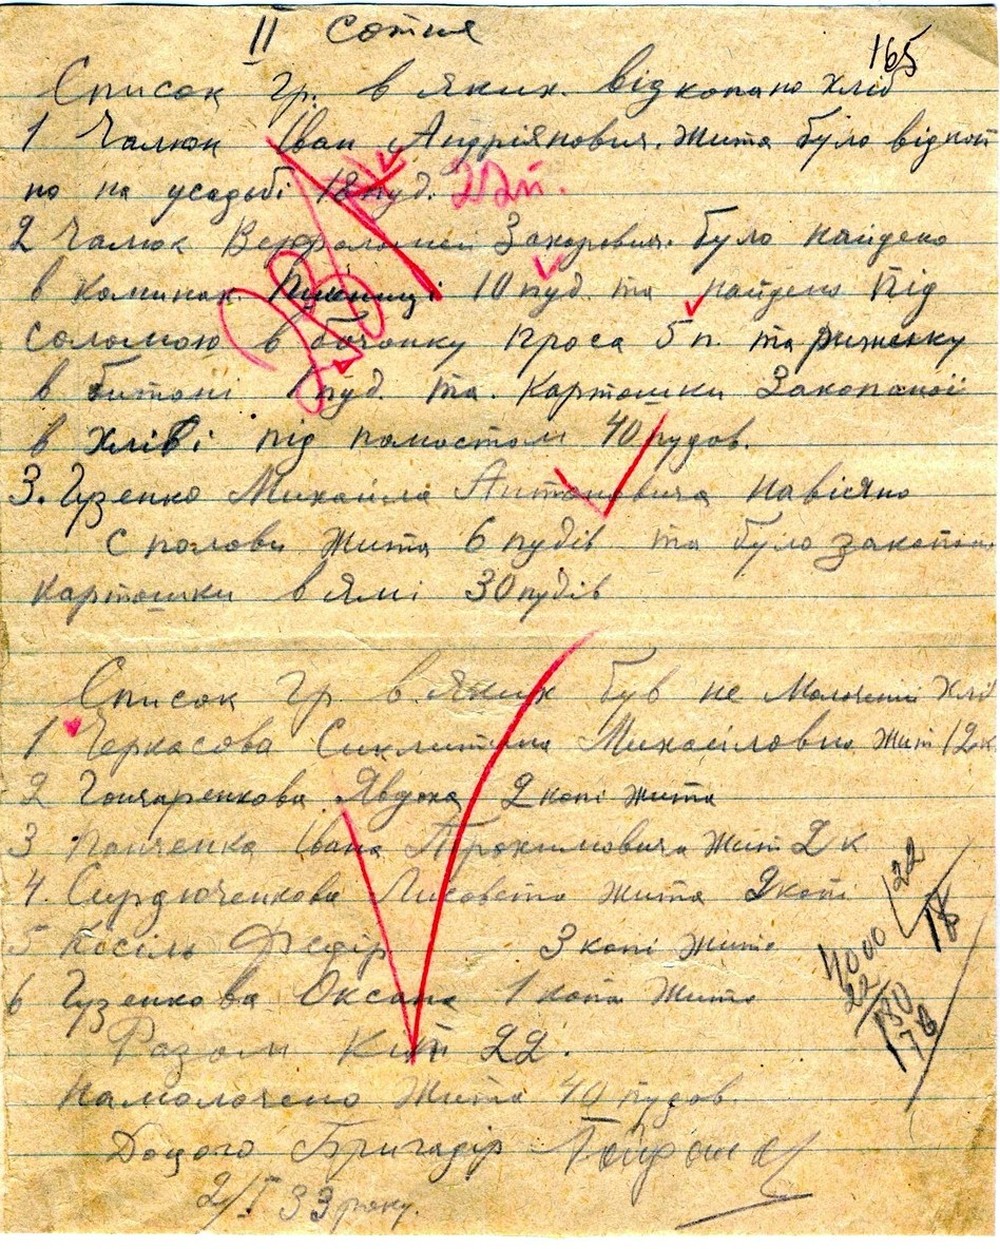 II сотня
165
Список гр. в яких. відкопано хліб
1 Чалюк Іван Андріянович. жита було відкопа
но на усадьбі 18 пуд. 22п.
2 Чалюк Захарович. було найдено
в коминах. пшениці 10 пуд. та найдено під
соломою в бочонку проса 5 п. та рижеку
в битоні 1 пуд. та. картошки закопаної
в хліві під помостом 40 пудов.
3. Гузенко Михаіла Антоновича навіяно
с полови жита 6 пудів та було закопан.
картошки в ямі 30 пудів
Список гр. в. яких був не молочений хліб
1 Черкасова Михайловна жит 12к
2 Гончаренкова Явдоха 2 копі жита
3 Панченка Івана Прохимовича жит 2 к
4. Сердюченкова Лисовета жита 2 копі
5 Косіль Федір 3 копі жита
6 Гузенкова Оксана 1 копа жита
Разом кіп 22.
Намолочено жита 40 пудов.
До цого Бригадір
2/I 33 року.
4000 22
22 18
180
178